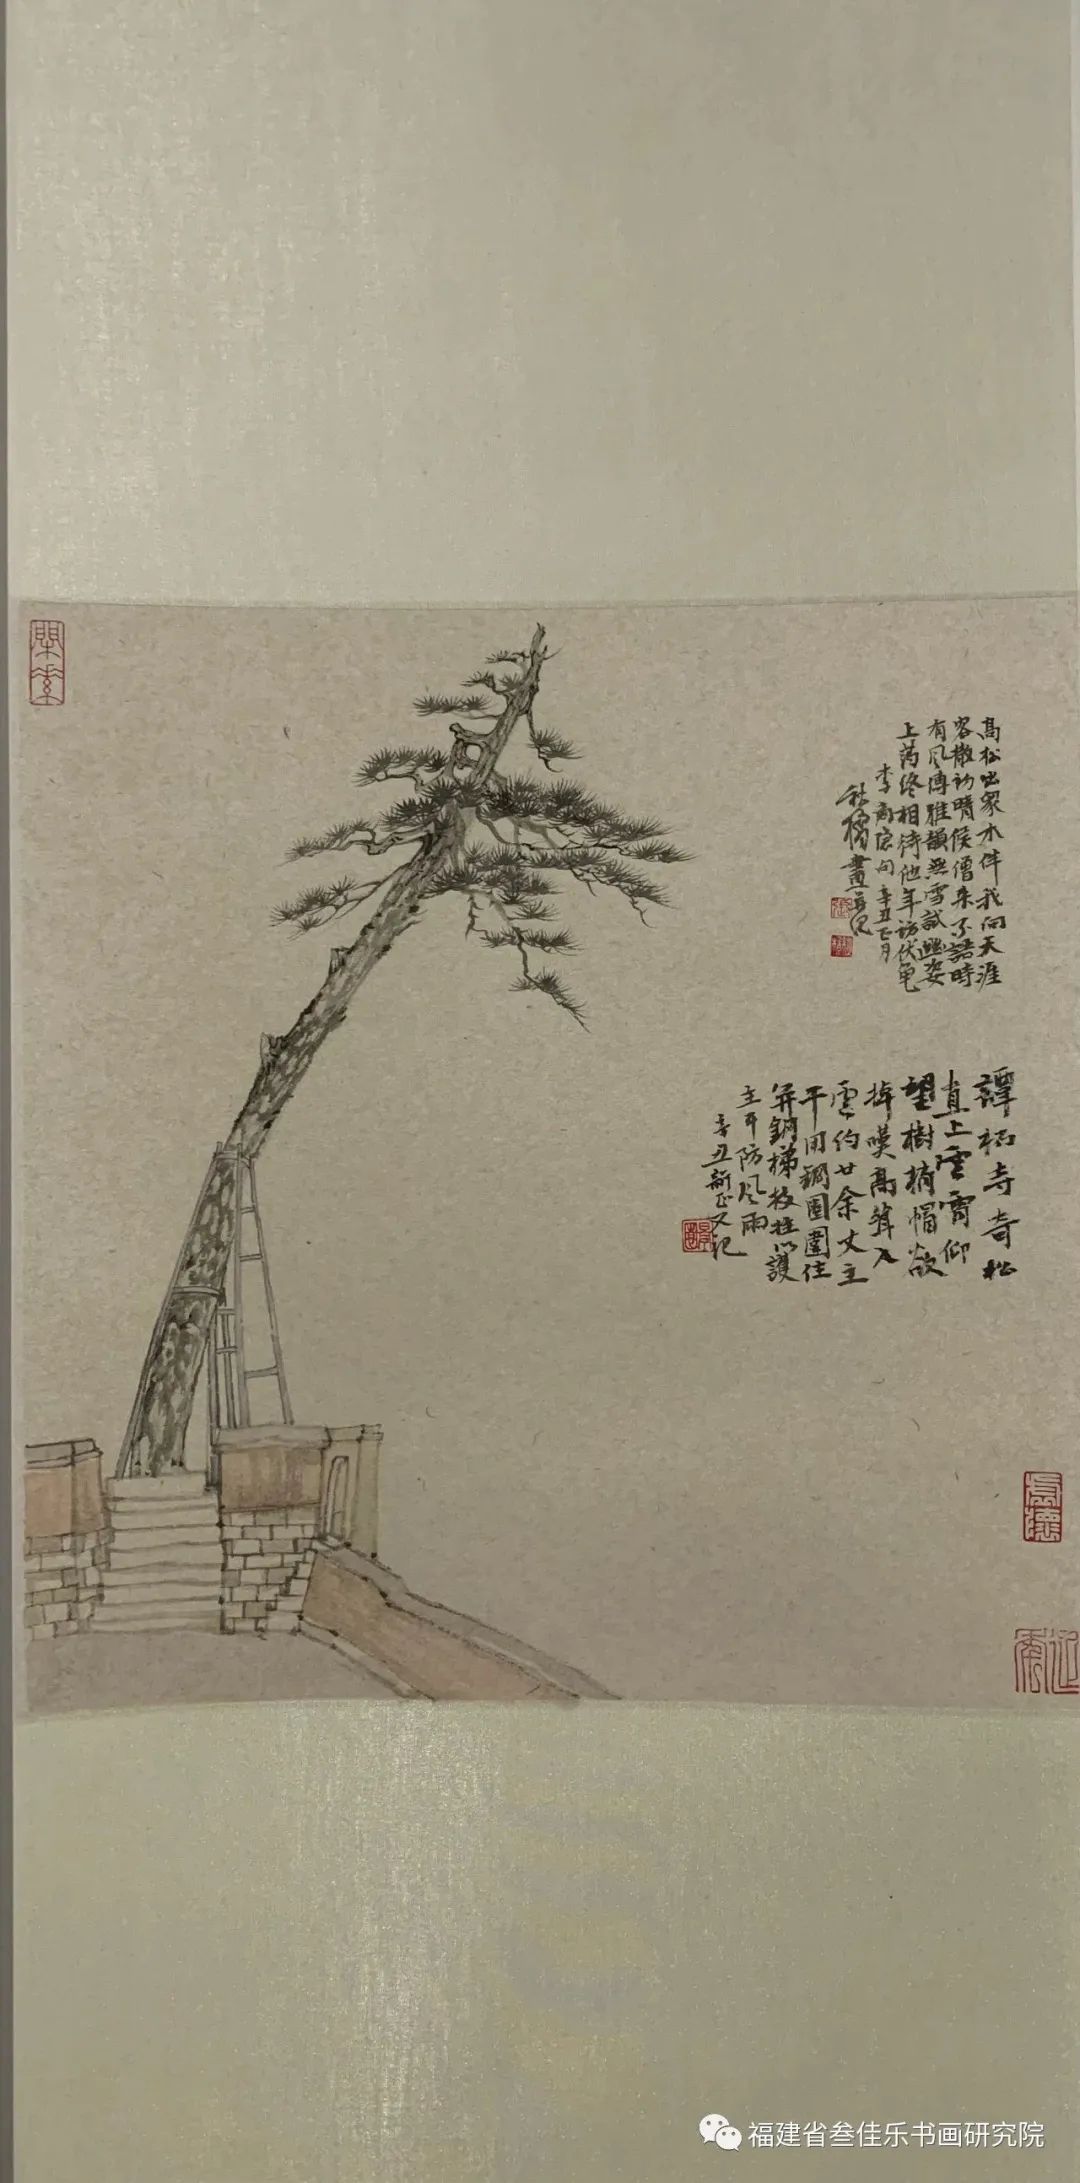 高松出眾木伴我向天涯
客散初晴候僧来不語時
有風傳雅韻無雪試幽姿
上葯終相待他年訪伏龟
李商隐句 辛丑正月
秋橋畫並記
譚柘寺奇松
直上雲霄仰
望樹梢帽欲
掉嘆高聳入
雲約廿余丈主
干用鋼固圍住
并鋼梯枝拄以護
主干防風雨
辛丑新正又記
福建省叁佳乐书画研究院